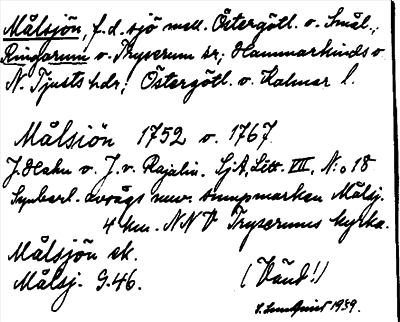 Målsjön, f.d. sjö mell. Östergötl. o. Smål.,
Ringarum o. Tryserum sr; Hammarkinds o.
N. Tjusts hdr; Östergötl. o. Kalmar l.
Målsiön 1752 o. 1767.
J. Hahn o. J. v. Rajalin. SjA, Litt. VII, N:o 18
Synberl. avsågs nuv. sumpmarken Målsj.
4 km. NNV Tryserums kyrka.
Målsjön ek.
Målsj. G.46.
(Vänd!)
S. Lundquist 1939.